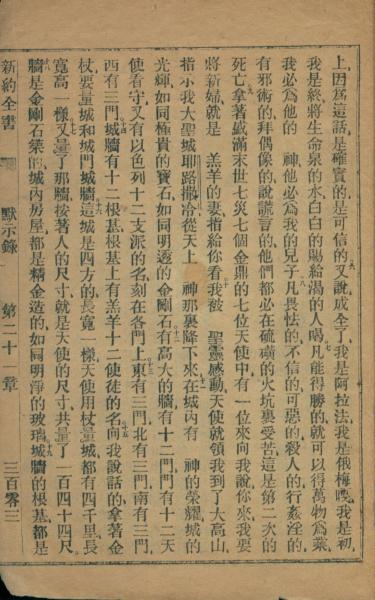 上因爲這話是確實的是可信的又說成全了我是阿拉法我是俄梅戛我是初
我是終將生命泉的水白白的賜給渴的人喝凡能得勝的就可以得萬物爲業
我必爲他的 神他必爲我的兒子凡畏怯的不信的可惡的殺人的行姦淫的
有邪術的拜偶像的說謊言的他們都必在硫磺的火坑裏受苦這是第二次的
死亡拿著盛滿末世七災七個金鼎的七位天使中有一位來向我說你來我要
將新婦就是 羔羊的妻指給你看我被 聖靈感動天使就領我到了大高山
指示我大聖城耶路撒冷從天上 神那裏降下來在城內有 神的榮耀城的
光輝如同極貴的寶石如同明透的金剛石有高大的牆有十二門門有十二天
使看守又有以色列十二支派的名刻在各門上東有三門北有三門南有三門
西有三門城牆有十二根基根基上有羔羊十二使徒的名向我說話的拿著金
杖要量城和城門城牆這城是四方的長寬一樣天使用杖量城都有四千里長
寬高一樣又量了那牆按著人的尺寸就是天使的尺寸共量了一百四十四尺
牆是金剛石築的城內房屋都是精金造的如同明淨的玻璃城牆的根基都是
新約全書 默示錄 第二十一章 三百零三